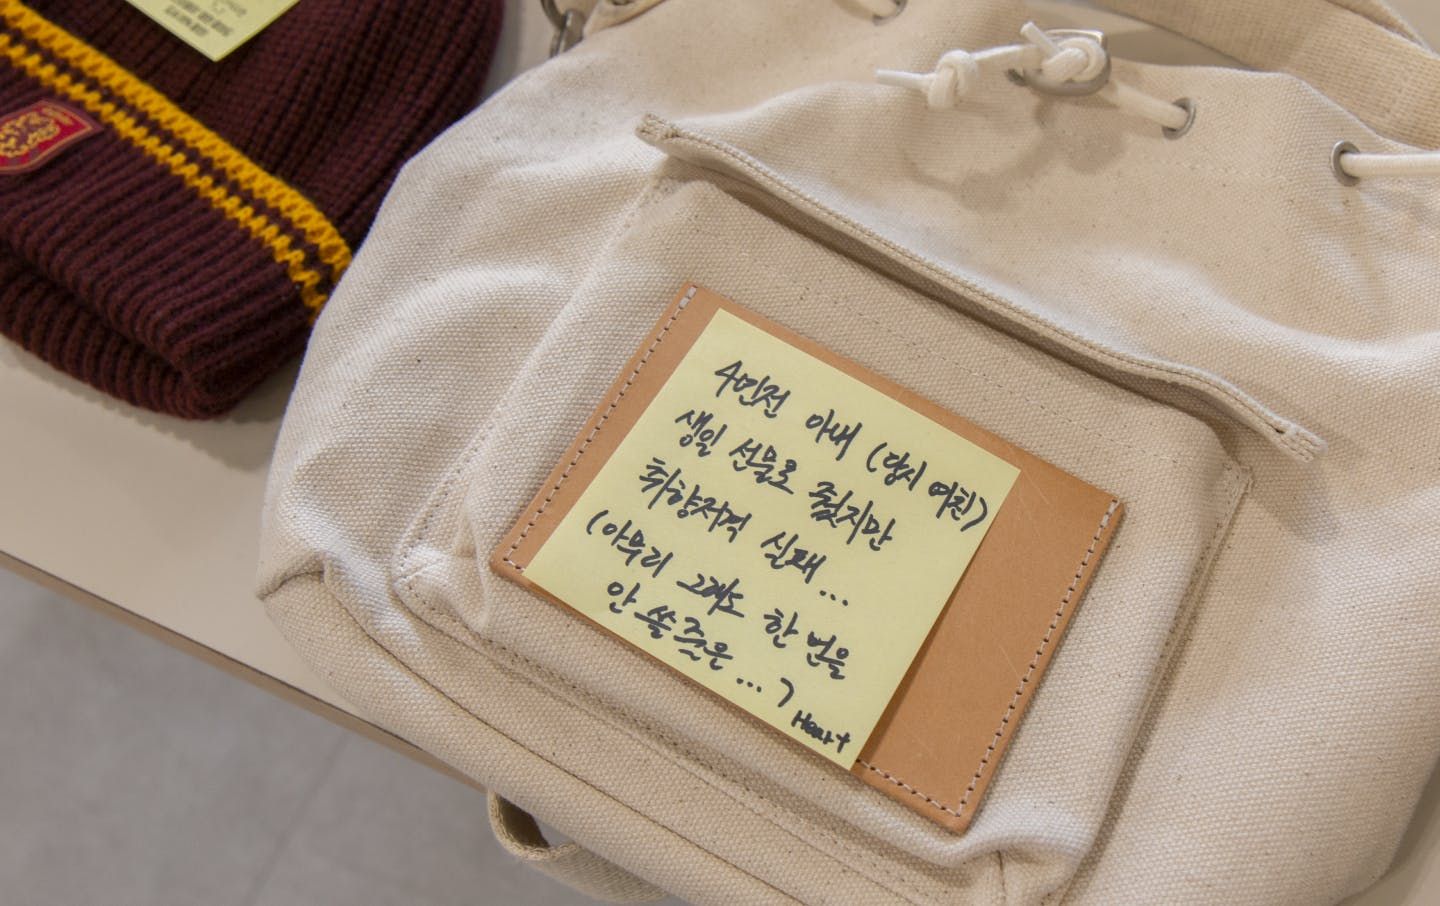 4년전 아내 (당시 여친)
생일 선물로 줬지만
취향저격 실패...
(아무리 그래도 한 번을
안 쓸 줄은...)
Heart